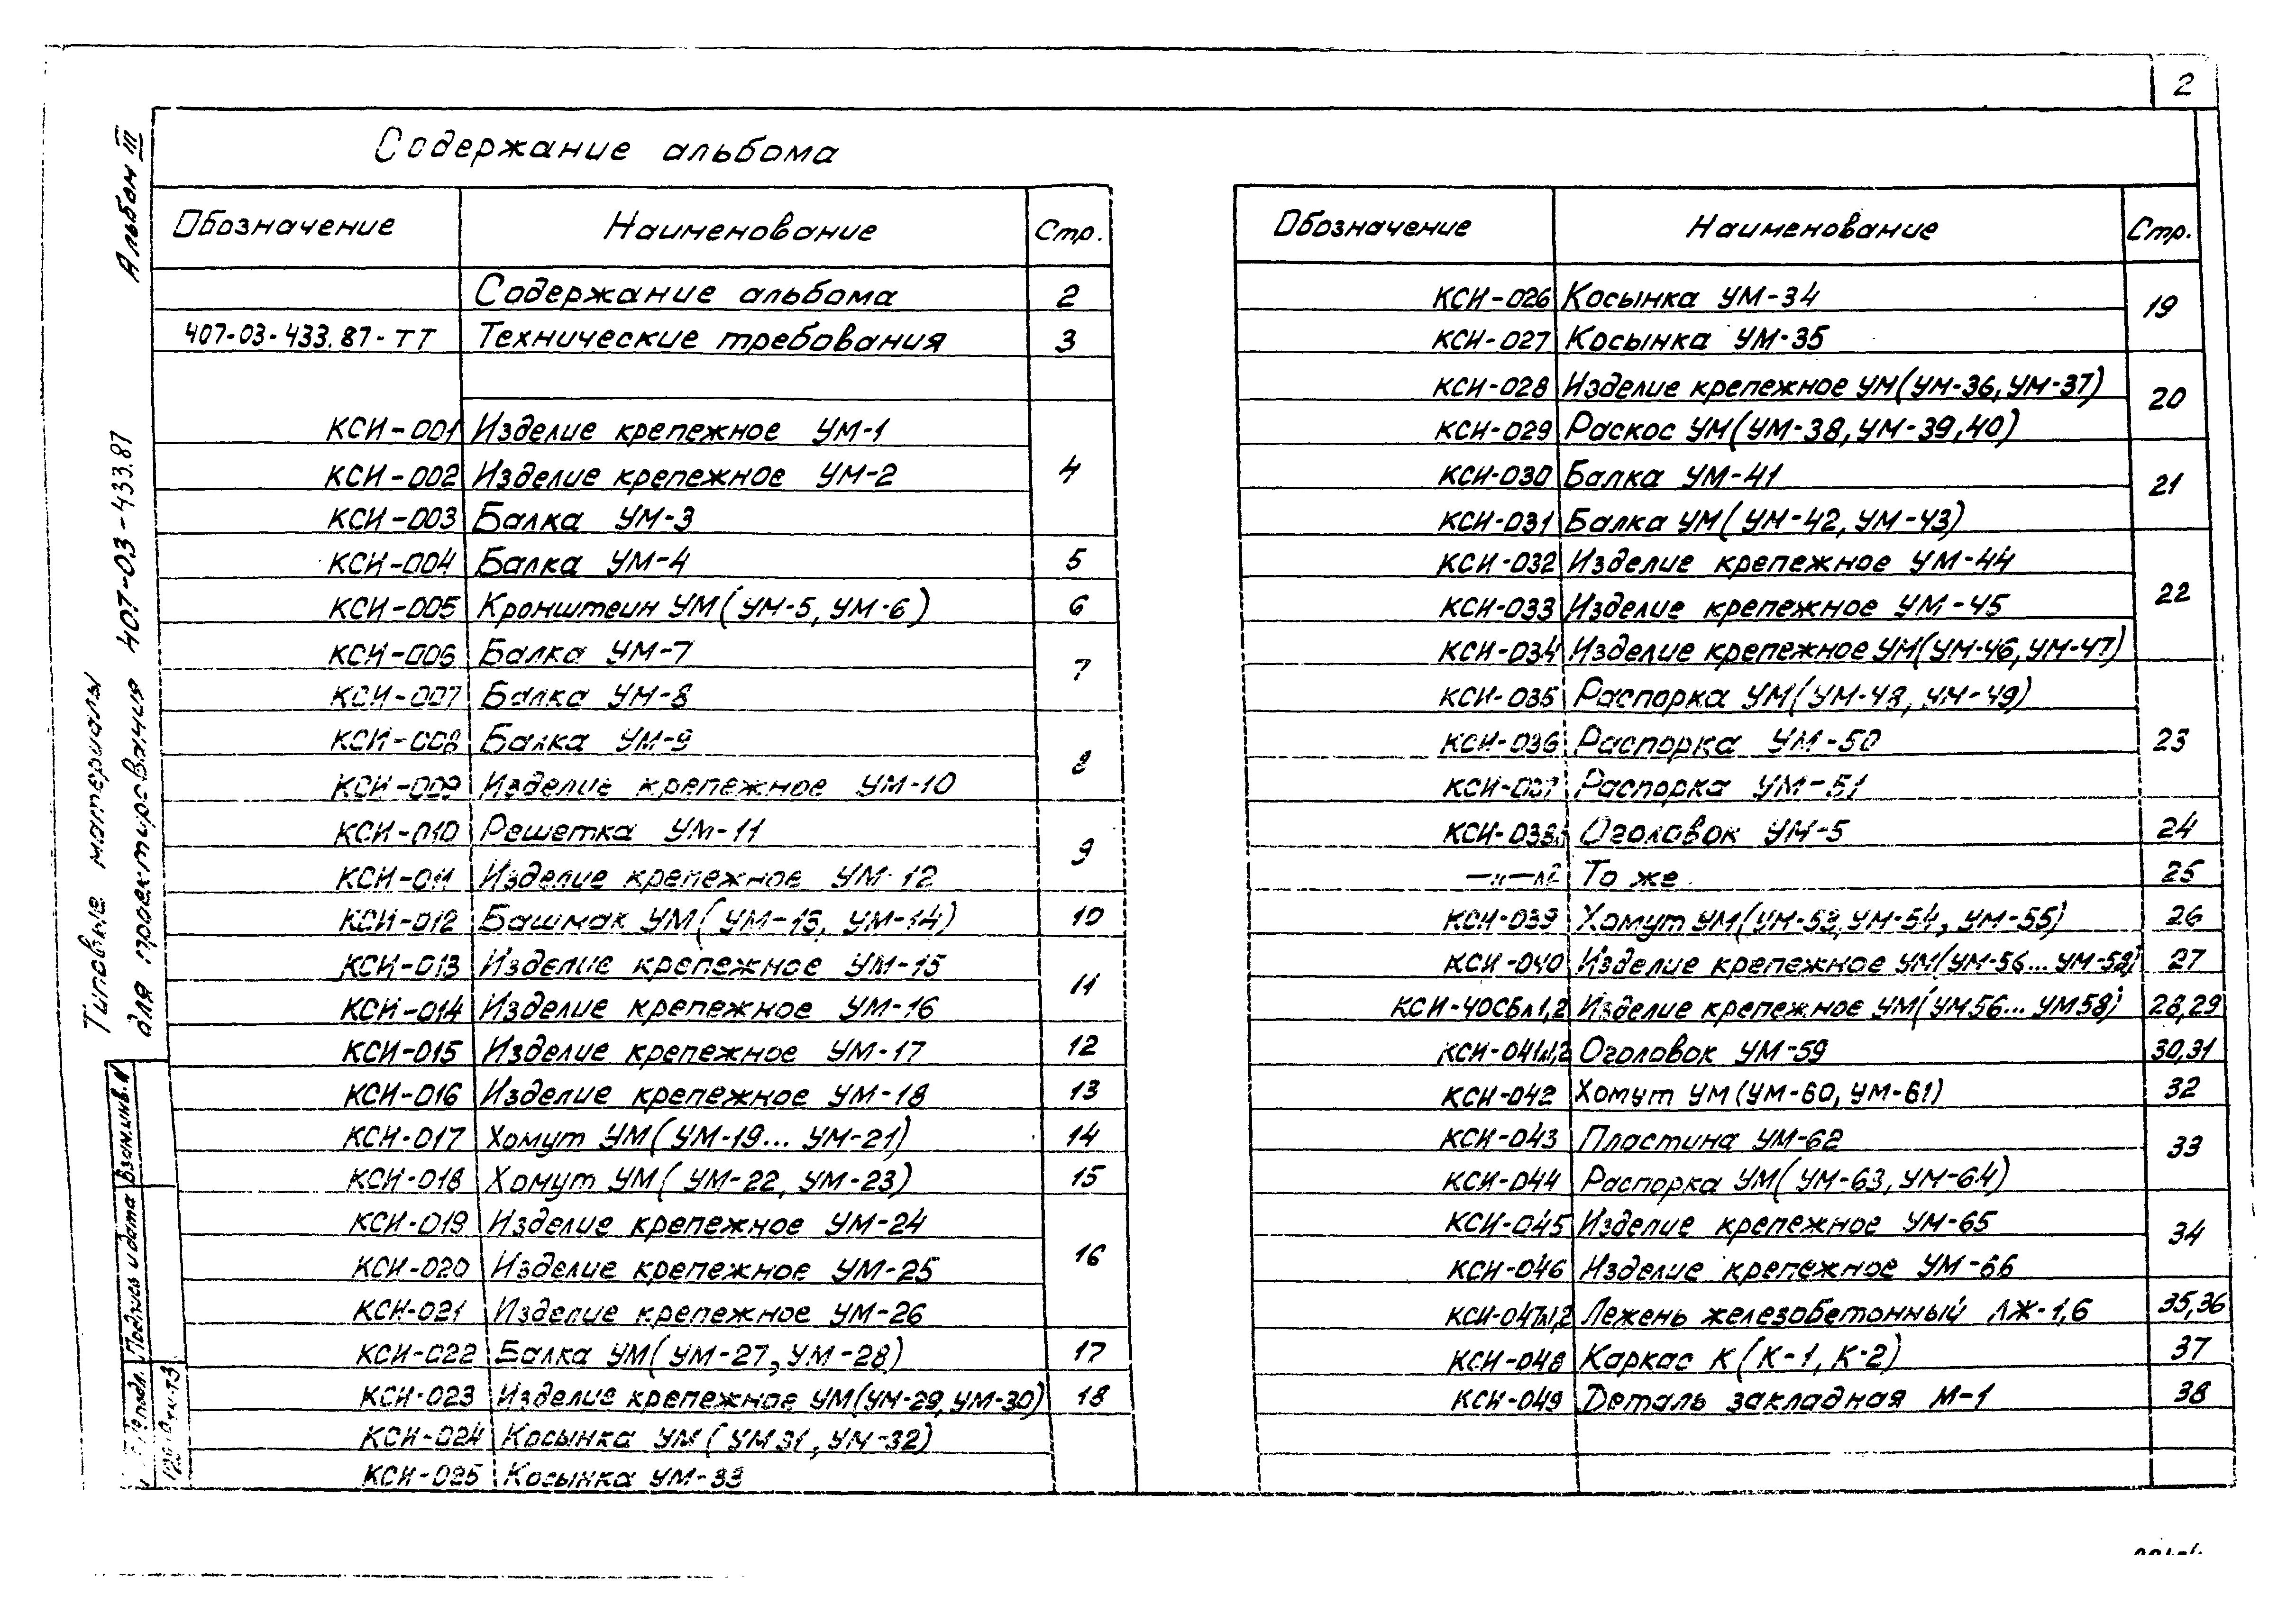 2
Содержание альбома
Обозначение Наименование Стр.
Содержание альбома 2
407-03-433.87-ТТ Технические требования 3
КСИ-001 Изделие крепежное УМ-1
КСИ-002 Изделие крепежное УМ-2 4
КСИ-003 Балка УМ-3
КСИ-004 Балка УМ-4 5
КСИ-005 Кронштеин УМ(УМ-5, УМ-6) 6
КСИ-006 Балка УМ-7 7
КСИ-007 Балка УМ-8
КСИ-008 Балка УМ-9 8
КСИ-009 Изделие крепежное УМ-10
КСИ-010 Решетка УМ-11 9
КСИ-011 Изделие крепежное УМ-12
КСИ-012 Башмак УМ(УМ-13, УМ-14) 10
КСИ-013 Изделие крепежное УМ-15 11
КСИ-014 Изделие крепежное УМ-16
КСИ-015 Изделие крепежное УМ-17 12
КСИ-016 Изделие крепежное УМ-18 13
КСИ-017 Хомут УМ(УМ-19... УМ-21) 14
КСИ-018 Хомут УМ(УМ-22, УМ-23) 15
КСИ-019 Изделие крепежное УМ-24
КСИ-020 Изделие крепежное УМ-25 16
КСИ-021 Изделие крепежное УМ-26
КСИ-022 Балка УМ(УМ-27, УМ-28) 17
КСИ-023 Изделие крепежное УМ(УМ-29, УМ-30) 18
КСИ-024 Косынка УМ(УМ31, УМ-32)
КСИ-025 Косынка УМ-33
Обозначение Наименование Стр.
КСИ-026 Косынка УМ-34 19
КСИ-027 Косынка УМ-35
КСИ-028 Изделие крепежное УМ(УМ-36, УМ-37) 20
КСИ-029 Раскос УМ(УМ-38, УМ-39, 40)
КСИ-030 Балка УМ-41 21
КСИ-031 Балка УМ(УМ-42, УМ-43)
КСИ-032 Изделие крепежное УМ-44
КСИ-033 Изделие крепежное УМ-45 22
КСИ-034 Изделие крепежное УМ(УМ-46, УМ-47)
КСИ-035 Распорка УМ(УМ-48, УМ-49)
КСИ-036 Распорка УМ-50 23
КСИ-037 Распорка УМ-51
КСИ-038л1 Оголовок УМ-5 24
—"—л2 То же 25
КСИ-039 Хомут УМ(УМ-53, УМ-54, УМ-55) 26
КСИ-040 Изделие крепежное УМ(УМ-56... УМ-58) 27
КСИ-40СБл1,2 Изделие крепежное УМ(УМ56... УМ58) 28,29
КСИ-041л1,2 Оголовок УМ-59 30,31
КСИ-042 Хомут УМ(УМ-60, УМ-61) 32
КСИ-043 Пластина УМ-62 33
КСИ-044 Распорка УМ(УМ-63, УМ-64)
КСИ-045 Изделие крепежное УМ-65 34
КСИ-046 Изделие крепежное УМ-66
КСИ-047л1,2 Лежень железобетонный ЛЖ-1,6 35,36
КСИ-048 Каркас К(К-1, К-2) 37
КСИ-049 Деталь закладная М-1 38
Альбом III
Типовые материалы
для проектирования 407-03-433.87
Взам.инв.N
Подпись и дата